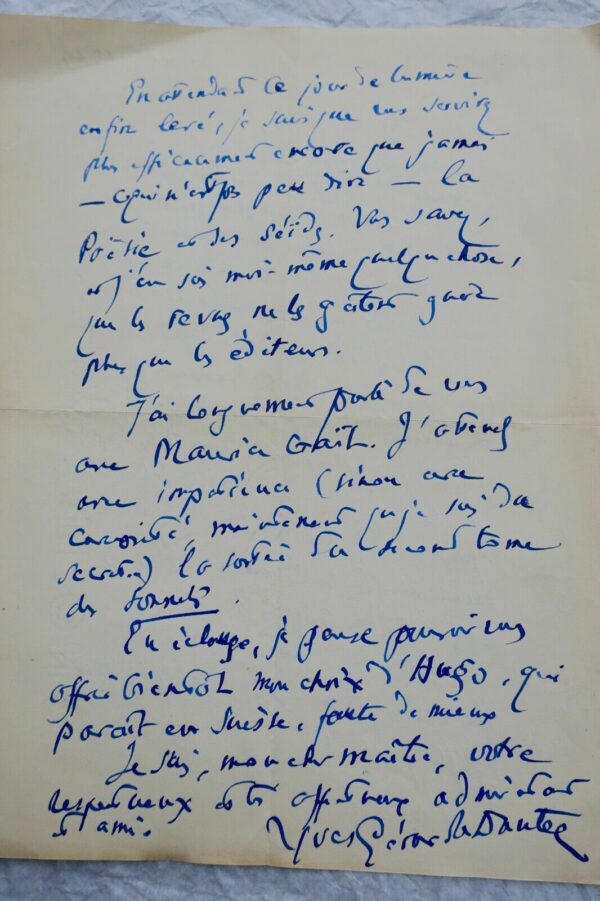 En attendant ce jour de lumière
enfin levé, je sais que vous servirez
plus efficacement encore que jamais
— ce qui n'est pas peu dire — la
Poësie et ses séides. Vous savez,
et j'en sais moi-même quelque chose,
que les revues ne les gâtent guère
plus que les éditeurs.
J'ai longuement parlé de vous
avec Maurice. J'attends
avec impatience (sinon avec
curiosité, maintenant que je suis du
secret) la sortie du second tome
des Sonnets.
En échange, je pense pouvoir vous
offrir bientôt mon choix d'Hugo, qui
paraît en Suisse, faute de mieux
Je suis, mon cher maître, votre
respectueux et très affectueux admirateur
et ami.
Yves-Gérard Le Dantec